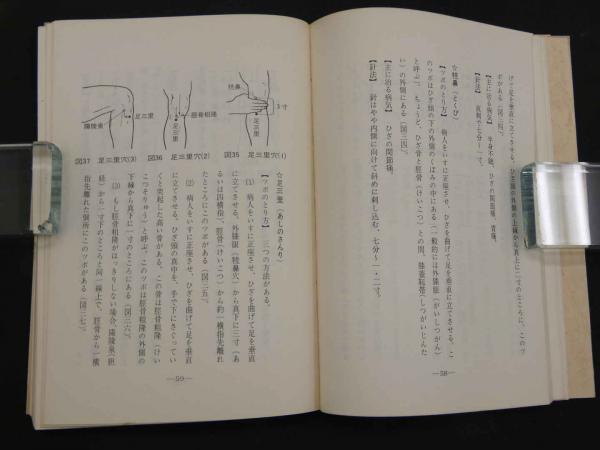 げて足を垂直に立てさせる。ひざ頭の外側の上縁から真上に二寸のところに、このツ
ボがある(図三四)。
【主に治る病気】 半身不随、ひざの関節痛、胃痛。
【針法】 直刺で七分〜一寸。
☆犢鼻(とくび)
【ツボのとり方】 病人をいすに正座させ、ひざを曲げて足を垂直に立てさせる。こ
のツボはひざ頭の下の外側のくぼみの中にある(一般的には外膝眼(がいしつがん)
と呼ぶ)。ちょうど、ひざ骨と脛骨(けいこつ)との間、膝蓋靭帯(しつがいじんた
い)の外側にある(図三四)。
【主に治る病気】 ひざの関節痛。
【針法】 針はやや内側に向けて斜めに刺し込む。七分〜一・二寸。
—58—
犢鼻
3寸
足三里
図35 足三里穴(1)
足三里
脛骨粗隆
図36 足三里穴(2)
足三里
陽陵泉
図37 足三里穴(3)
☆足三里(あしのさんり)
【ツボのとり方】 三つの方法がある。
(1) 病人をいすに正座させ、ひざを曲げて足を垂直
に立てさせる。外膝眼(犢鼻穴)から真下に三寸(あ
るいは四横指)、脛骨(けいこつ)から約一横指先離れ
たところにこのツボがある(図三五)。
(2) 病人をいすに正座させ、ひざを曲げて足を垂直
に立てさせ、ひざ頭の真中を、手で下にさぐってい
くと突起した高い骨がある。この骨は脛骨粗隆(けい
こつそりゅう)と呼ぶ。このツボは脛骨粗隆の外側の
下縁から真下に一寸のところにある(図三六)。
(3) もし脛骨粗隆がはっきりしない場合、陽陵泉(胆
経)から一寸下のところと同一線上で、脛骨から一横
指先離れた個所にこのツボがある(図三七)。
—59—